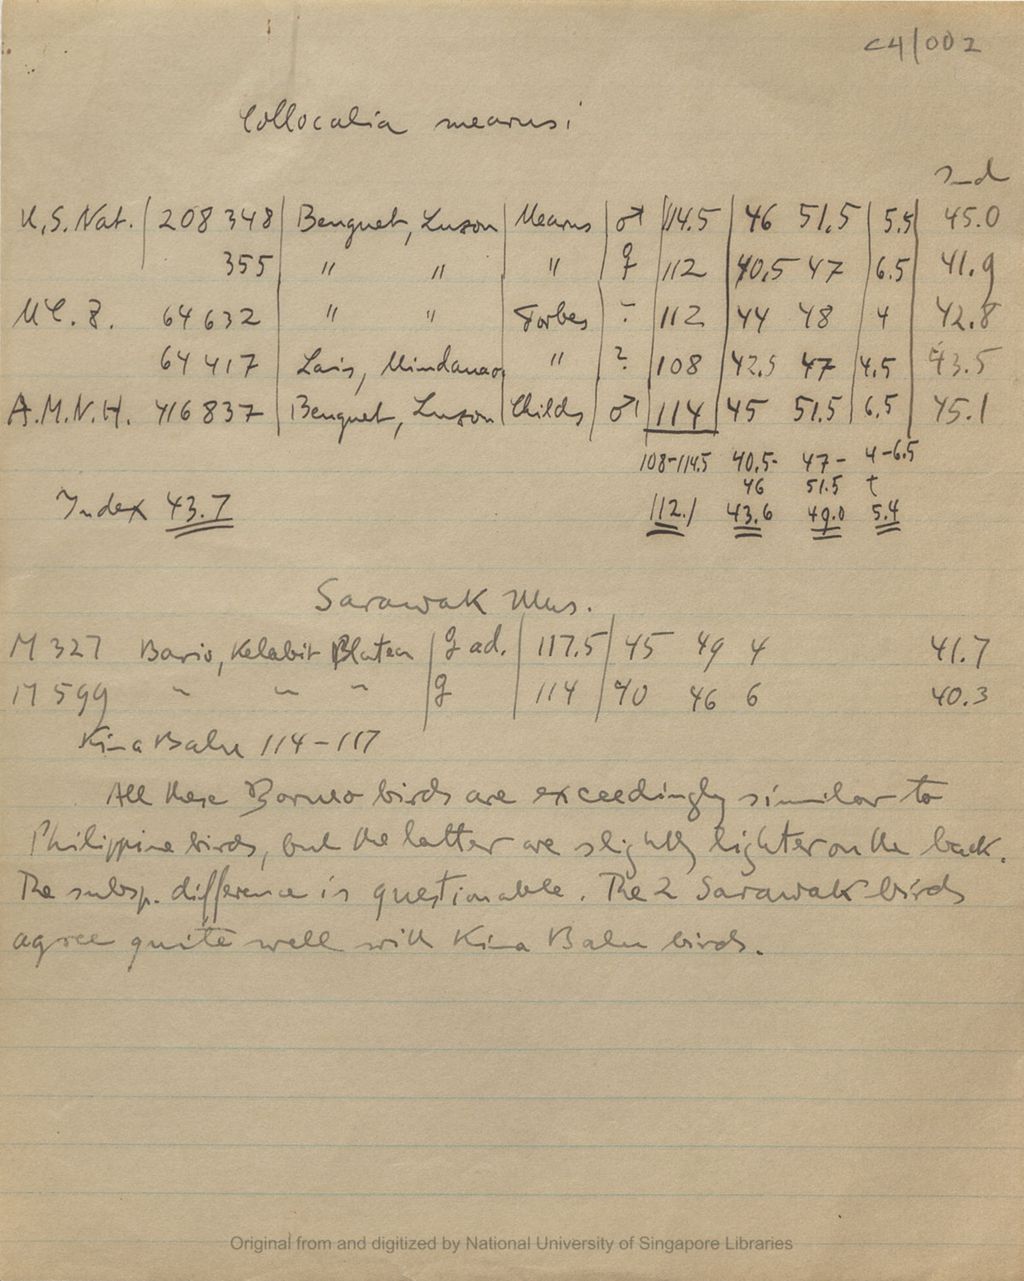 C4/002
Collocalia mearnsi
Ind
U.S. Nat. 208 348 Benguet, Luzon Mearns ♂ 114.5 46 51.5 5.5 45.0
355 " " " ♀ 112 40.5 47 6.5 41.9
M.C.Z. 64 632 " " Forbes - 112 44 48 4 42.8
64 417 Lais, Mindanao " ? 108 42.5 47 4.5 43.5
A.M.N.H. 416 837 Benguet, Luzon Childs ♂ 114 45 51.5 6.5 45.1
108-114.5 40.5- 47- 4-6.5
46 51.5
Index 43.7 112.1 43.6 49.0 5.4
Sarawak Mus.
M 327 Bario, Kelabit Plateau ♀ ad. 117.5 45 49 4 41.7
M 599 " " " ♀ 114 40 46 6 40.3
Kina Balu 114-117
All these Borneo birds are exceedingly similar to
Philippine birds, but the latter are slightly lighter on the back.
The subsp. difference is questionable. The 2 Sarawak birds
agree quite well with Kina Balu birds.
Original from and digitized by National University of Singapore Libraries